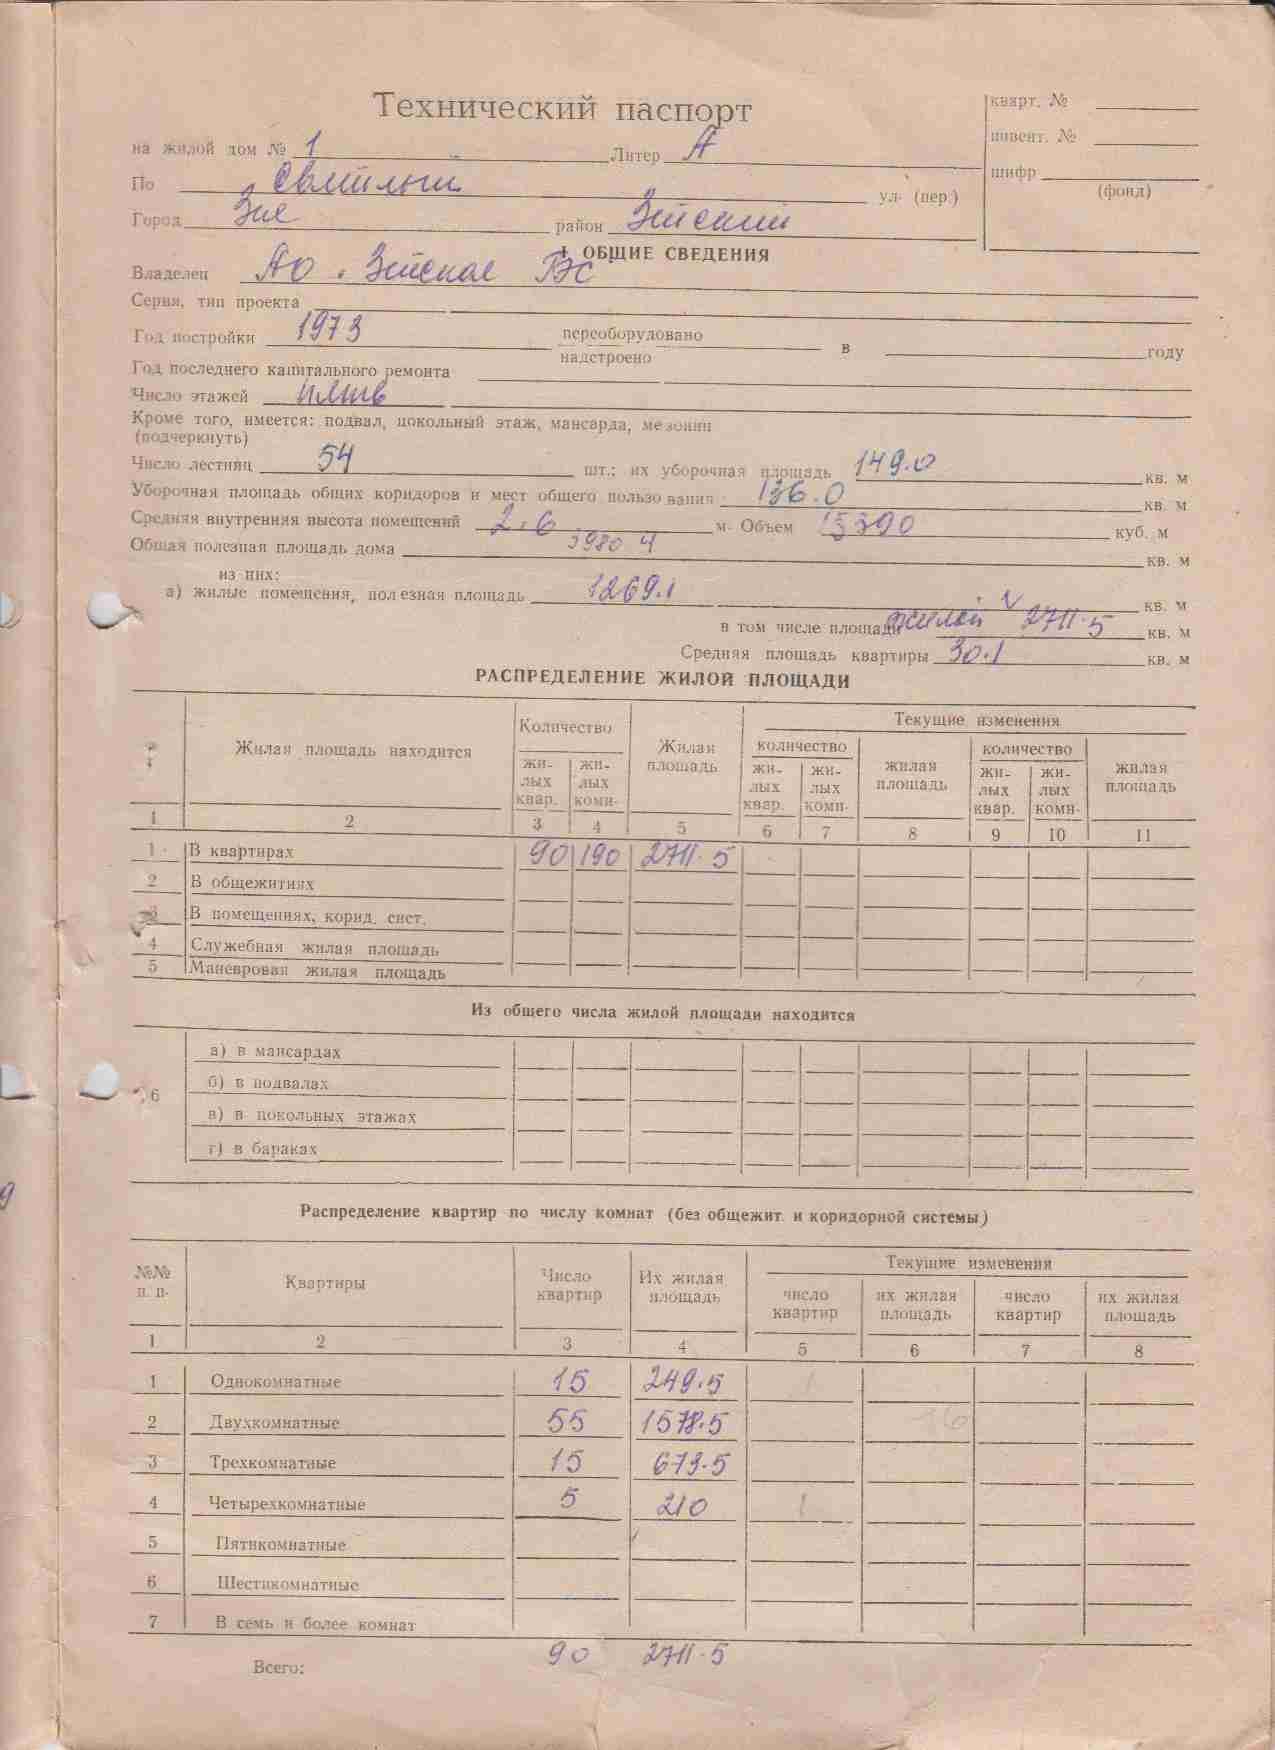 Технический паспорт
кварт. №
инвент. №
шифр
(фонд)
на жилой дом № 1 Литер А
По Светлый ул. (пер.)
Город Зея район Зейский
I ОБЩИЕ СВЕДЕНИЯ
Владелец АО "Зейская ГЭС
Серия, тип проекта
Год постройки 1973 переоборудовано
надстроено в году
Год последнего капитального ремонта
Число этажей пять
Кроме того, имеется: подвал, цокольный этаж, мансарда, мезонин
(подчеркнуть)
Число лестниц 54 шт.; их уборочная площадь 149.0 кв. м
Уборочная площадь общих коридоров и мест общего пользования 136.0 кв. м
Средняя внутренняя высота помещений 2.6 м. Объем 15390 куб. м
Общая полезная площадь дома 3980 4 кв. м
из них:
а) жилые помещения, полезная площадь 1269.1 кв. м
в том числе площади жилой 2711.5 кв. м
Средняя площадь квартиры 30.1 кв. м
РАСПРЕДЕЛЕНИЕ ЖИЛОЙ ПЛОЩАДИ
Жилая площадь находится Количество Жилая площадь Текущие изменения
жи-лых квар. жи-лых комн- количество жилая площадь количество жилая площадь
жи-лых квар. жи-лых комн- жи-лых квар. жи-лых комн-
1 2 3 4 5 6 7 8 9 10 11
1 В квартирах 90 190 2711.5
2 В общежитиях
3 В помещениях, корид. сист.
4 Служебная жилая площадь
5 Маневровая жилая площадь
Из общего числа жилой площади находится
а) в мансардах
б) в подвалах
6
в) в цокольных этажах
г) в бараках
Распределение квартир по числу комнат (без общежит. и коридорной системы)
№№ п. п. Квартиры Число квартир Их жилая площадь Текущие изменения
число квартир их жилая площадь число квартир их жилая площадь
1 2 3 4 5 6 7 8
1 Однокомнатные 15 249.5
2 Двухкомнатные 55 1578.5
3 Трехкомнатные 15 673.5
4 Четырехкомнатные 5 210
5 Пятикомнатные
6 Шестикомнатные
7 В семь и более комнат
Всего: 90 2711.5